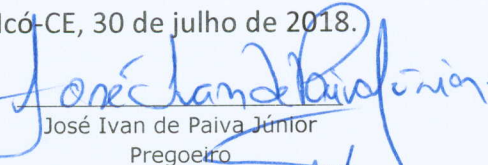 Icó-CE, 30 de julho de 2018.
José Ivan de Paiva Júnior
José Ivan de Paiva Júnior
Pregoeiro